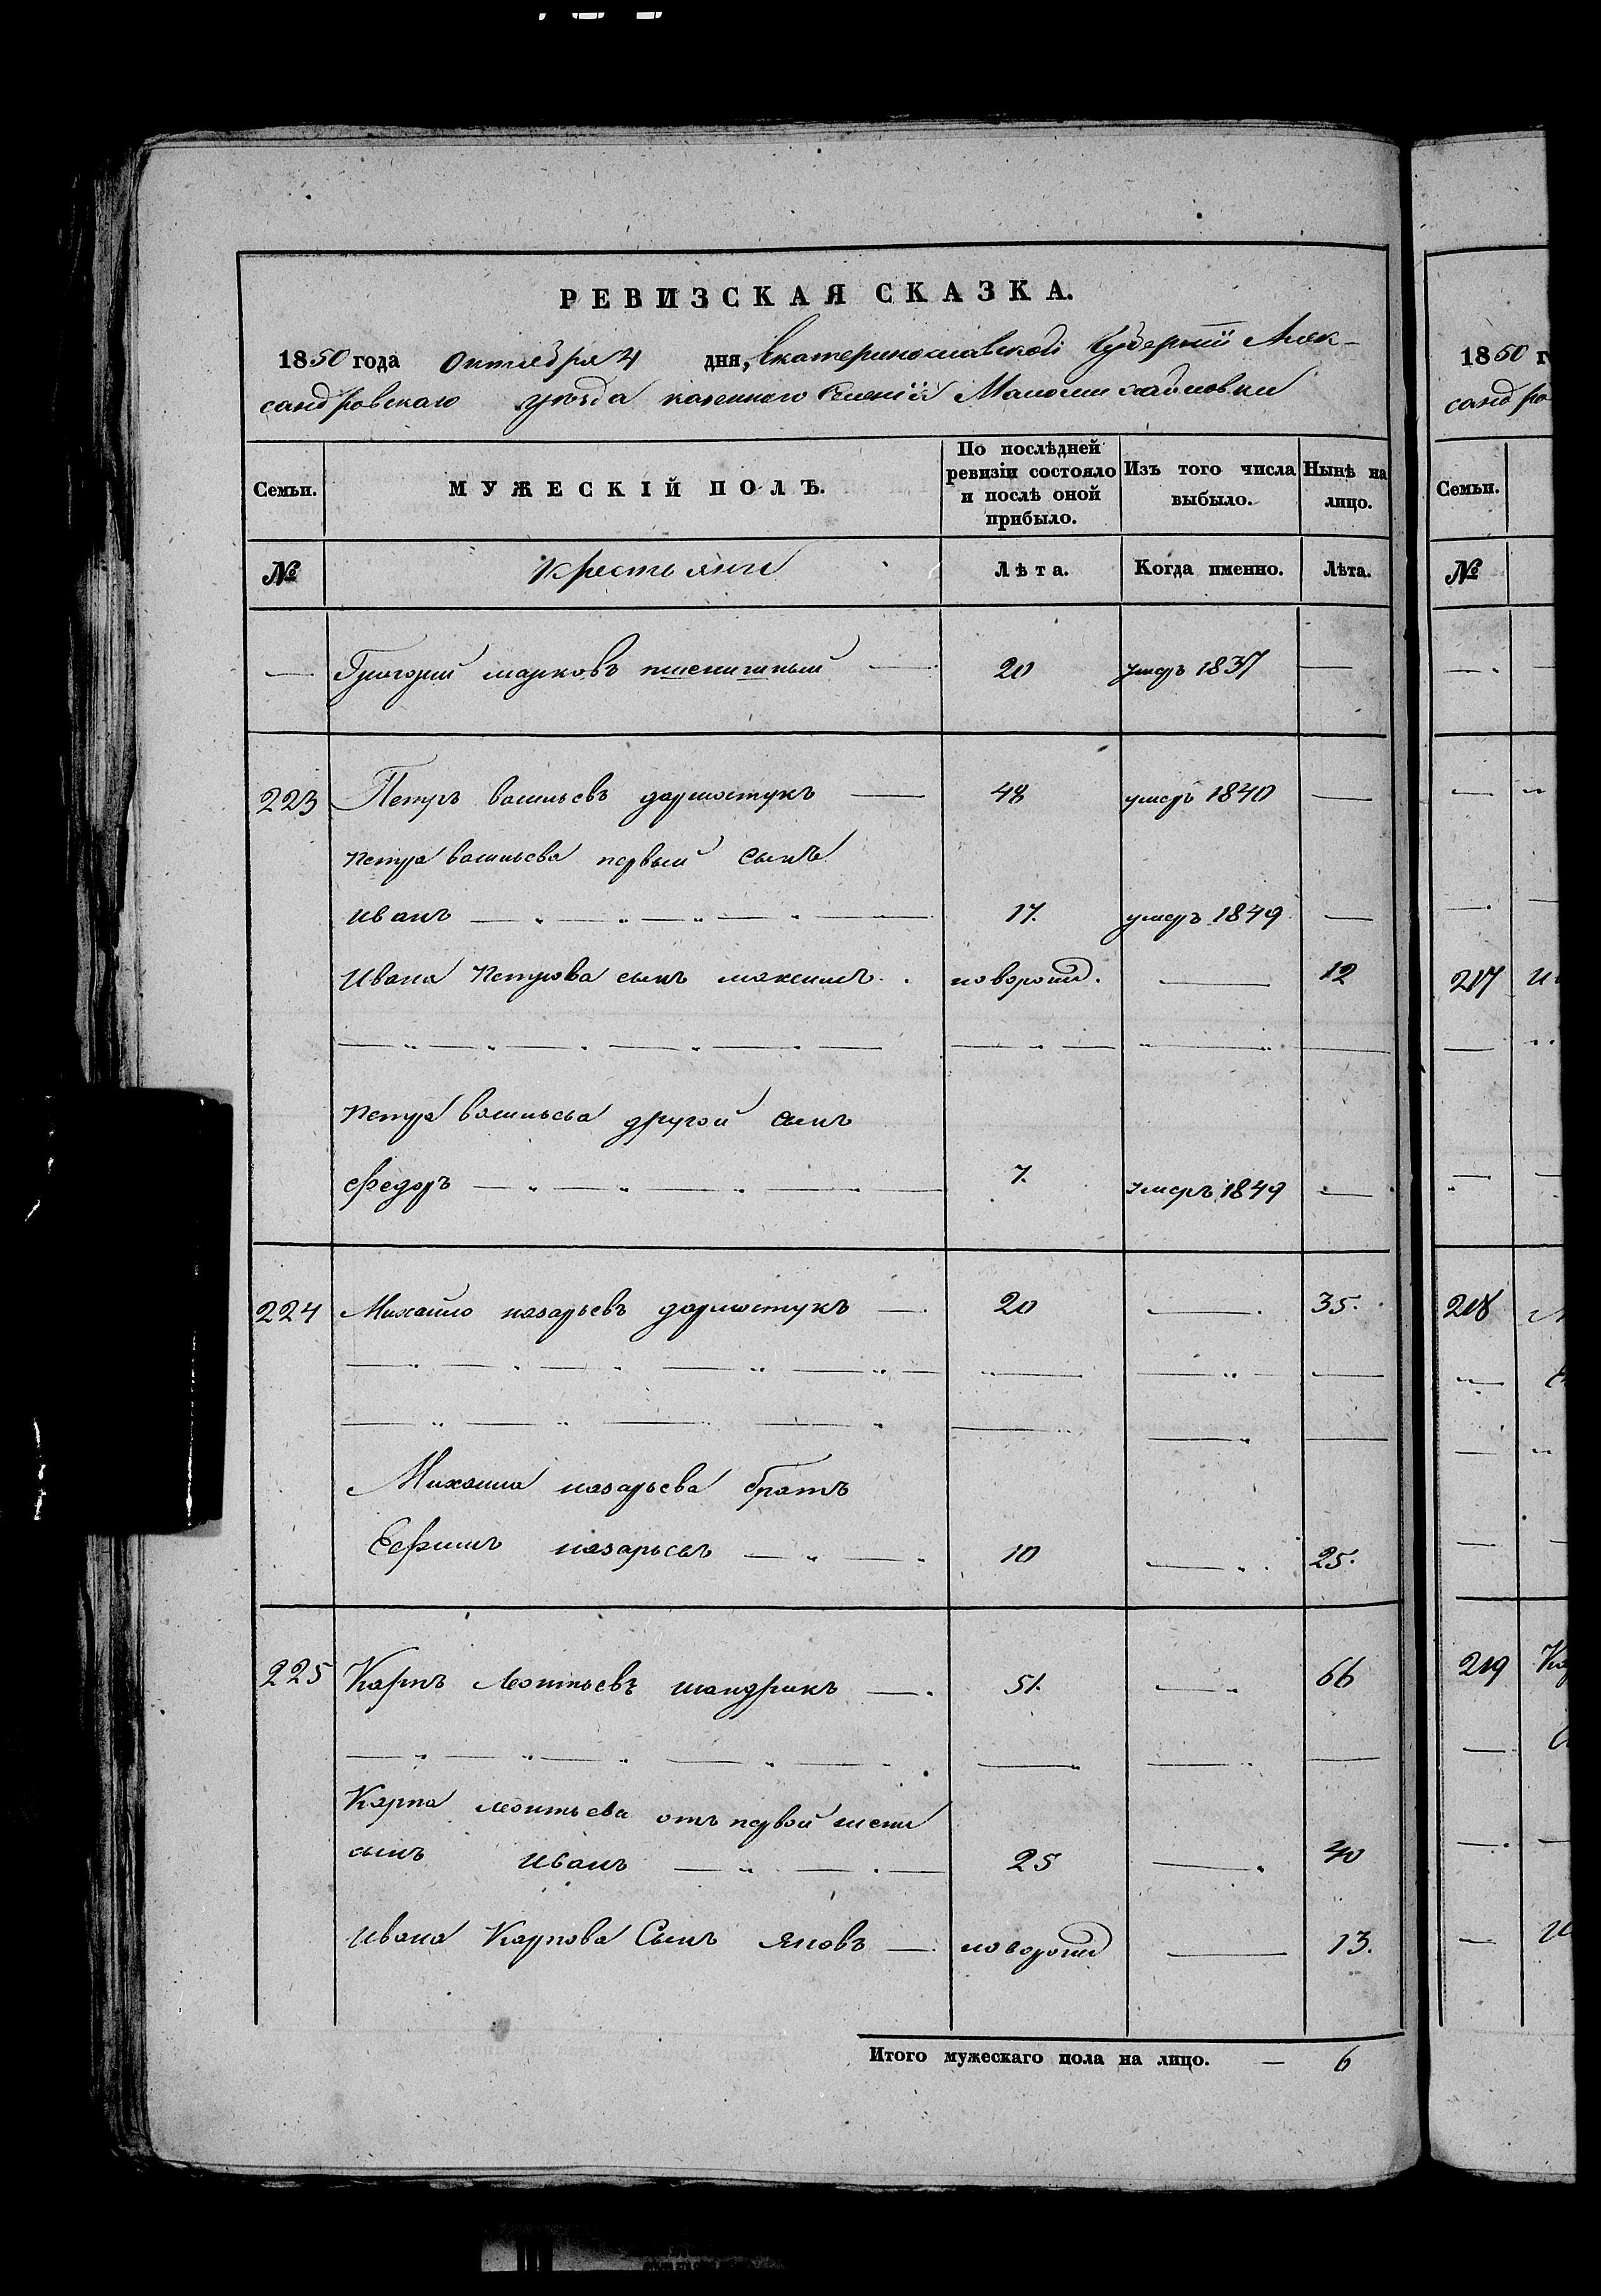 РЕВИЗСКАЯ СКАЗКА.
1850 года Октября 4 дня, Екатеринославской Губернiи Алек-
сандровскаго уезда казеннаго Селенiя Маломихайловки
Семьи. МУЖЕСКIЙ ПОЛЪ. По послѣдней ревизiи состояло и послѣ оной прибыло. Изъ того числа выбыло. Нынѣ на лицо.
№ Крестьяне Лѣта. Когда именно. Лѣта.
— Григорий марковъ пшенишный — 20 умеръ 1837 —
223 Петръ васильевъ дармостукъ — 48 умеръ 1840 —
петра васильева первый сынъ
иванъ — 17. умеръ 1849 —
Ивана Петрова сынъ максимъ. новорожд. — 12
Петра васильева другой сынъ
федоръ — 7. умеръ 1849 —
224 Михайло назарьевъ дармостукъ — 20 — 35.
Михаила назарьева братъ
Ефимъ назарьевъ — 10 — 25.
225 Карпъ Леонтьевъ шандрикъ — 51. — 66
Карпа леонтьева отъ первой жены
сынъ иванъ — 25 — 40
ивана Карпова Сынъ яковъ — новорожд — 13.
Итого мужескаго пола на лицо. — 6
1850 г
сандро
Семьи.
№
217
218
219